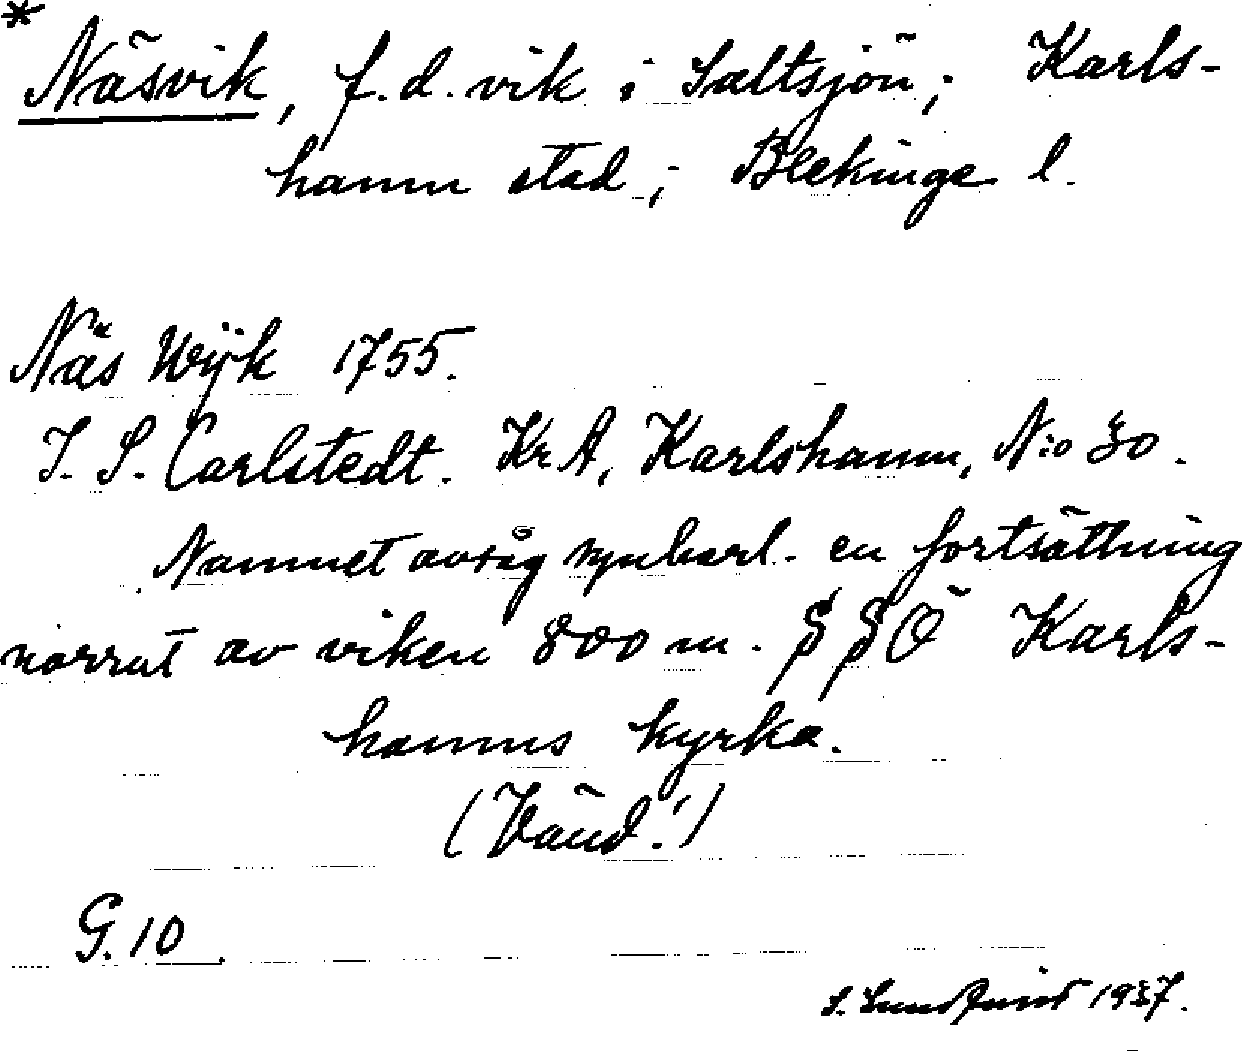 *
Näsvik, f.d. vik i Saltsjön; Karls-
hamn stad; Blekinge l.
Näs Wijk 1755.
I. S. Carlstedt. KrA, Karlshamn, N:o 30.
Namnet avsåg synbarl. en fortsättning
norrut av viken 800 m. SSÖ Karls-
hamns kyrka.
(Vänd!)
G. 10.
S. Lundquist 1937.